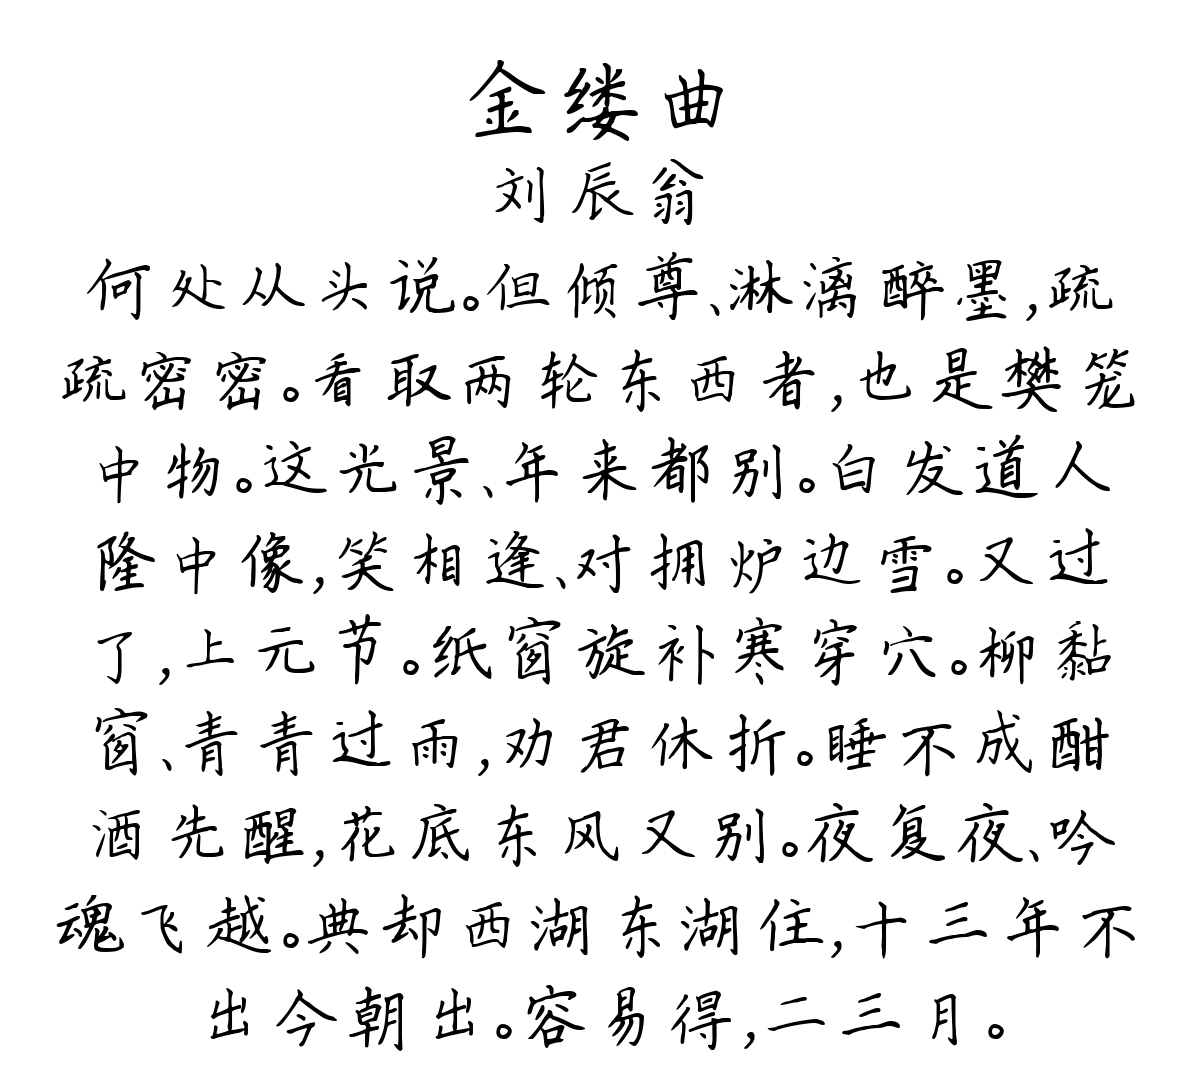 金缕曲
刘辰翁
何处从头说。但倾尊、淋漓醉墨,疏
疏密密。看取两轮东西者,也是樊笼
中物。这光景、年来都别。白发道人
隆中像,笑相逢、对拥炉边雪。又过
了,上元节。纸窗旋补寒穿穴。柳黏
窗、青青过雨,劝君休折。睡不成酣
酒先醒,花底东风又别。夜复夜、吟
魂飞越。典却西湖东湖住,十三年不
出今朝出。容易得,二三月。